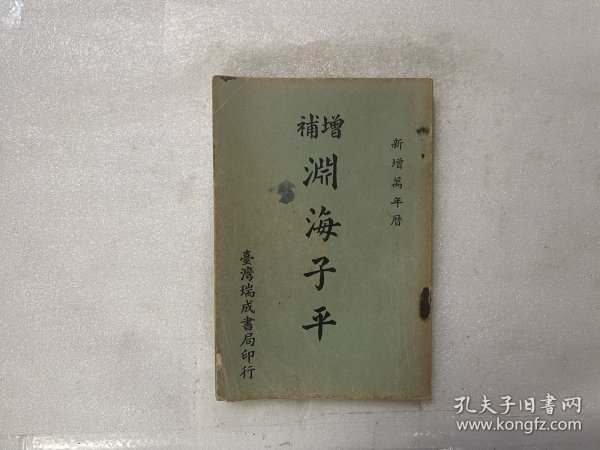 新增萬年曆
增補
淵海子平
臺灣瑞成書局印行
孔夫子旧书网
www.kongfz.com